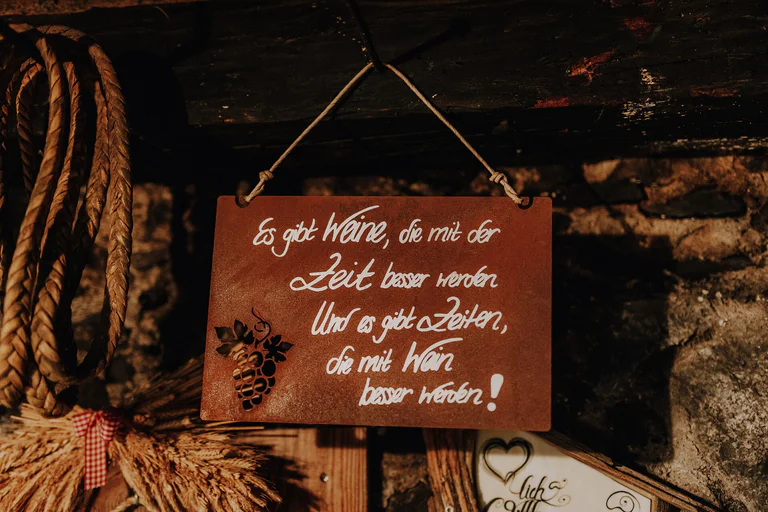 Es gibt Weine, die mit der
Zeit besser werden
Und es gibt Zeiten,
die mit Wein
besser werden!
lich